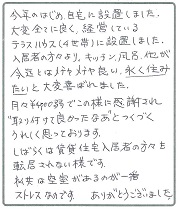 今年のはじめ、自宅に設置しました。
大変全てに良く、経営している
テラスハウス(4世帯)に設置しました。
入居者の方々より、キッチン、風呂、他が
今迄とはメチャメチャ良い、永く住み
たいと大変喜ばれました。
月々¥400弱でこの様に感謝され
"取り付けて良かったなあ"とつくづく
うれしく思っております。
しばらくは賃貸住宅入居者の方々も
転居されない様です。
私共は空室があるのが一番
ストレスなのです。 ありがとうございました。